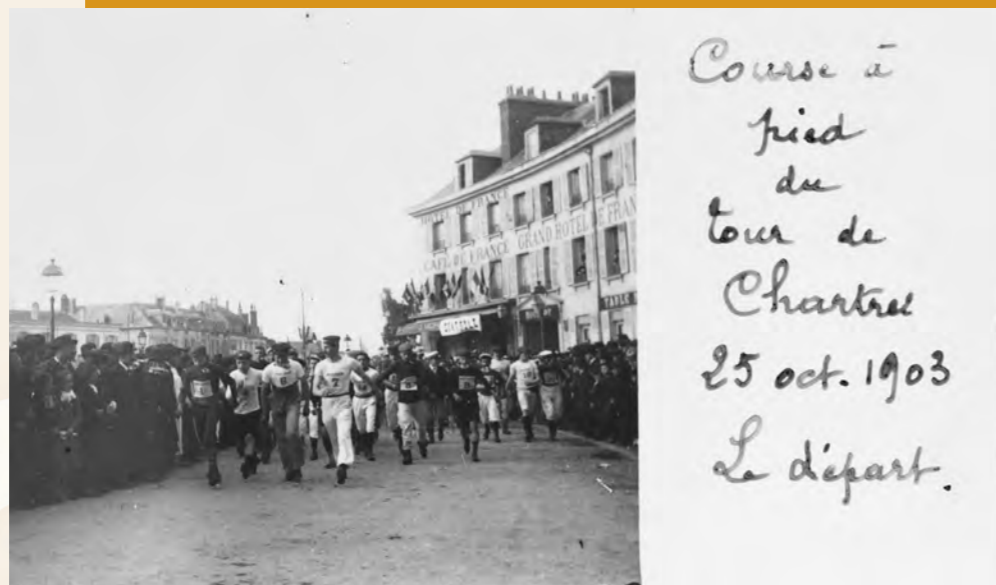 HOTEL DE FRANCE
CAFÉ DE FRANCE GRAND HOTEL DE FRAN
TABLE
7
Course à
pied
du
tour de
Chartres
25 oct. 1903
Le départ.